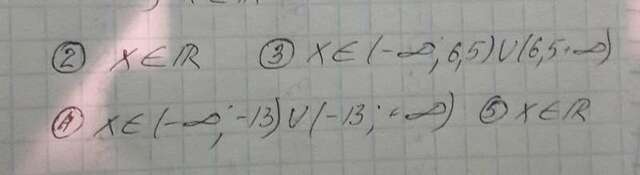 ② x∈ℝ ③ x∈(-∞; 6,5)∪(6,5 +∞)
④ x∈(-∞; -13)∪(-13; +∞) ⑤ x∈ℝ